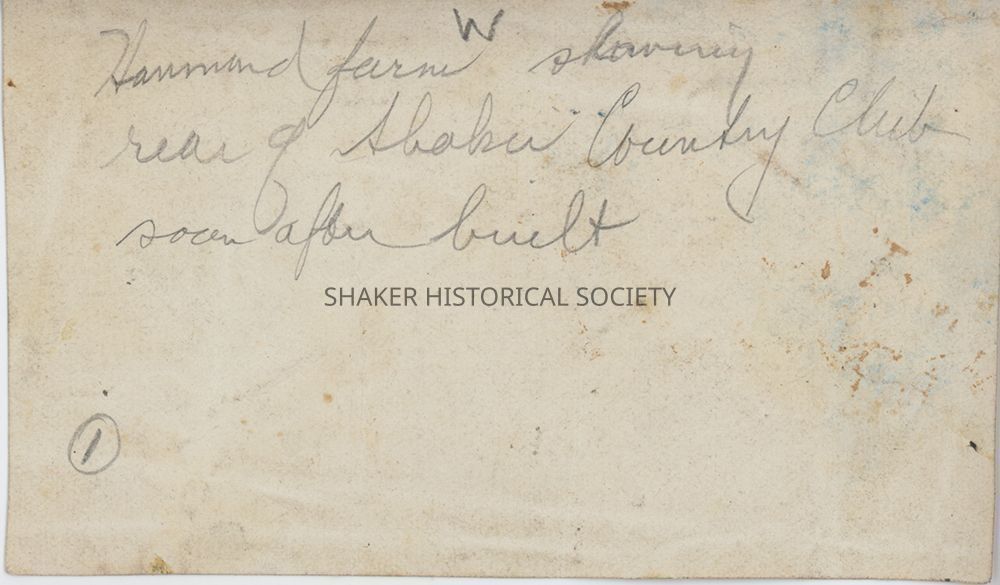 W
Hammond farm showing
rear of Shaker Country Club
soon after built
SHAKER HISTORICAL SOCIETY
1